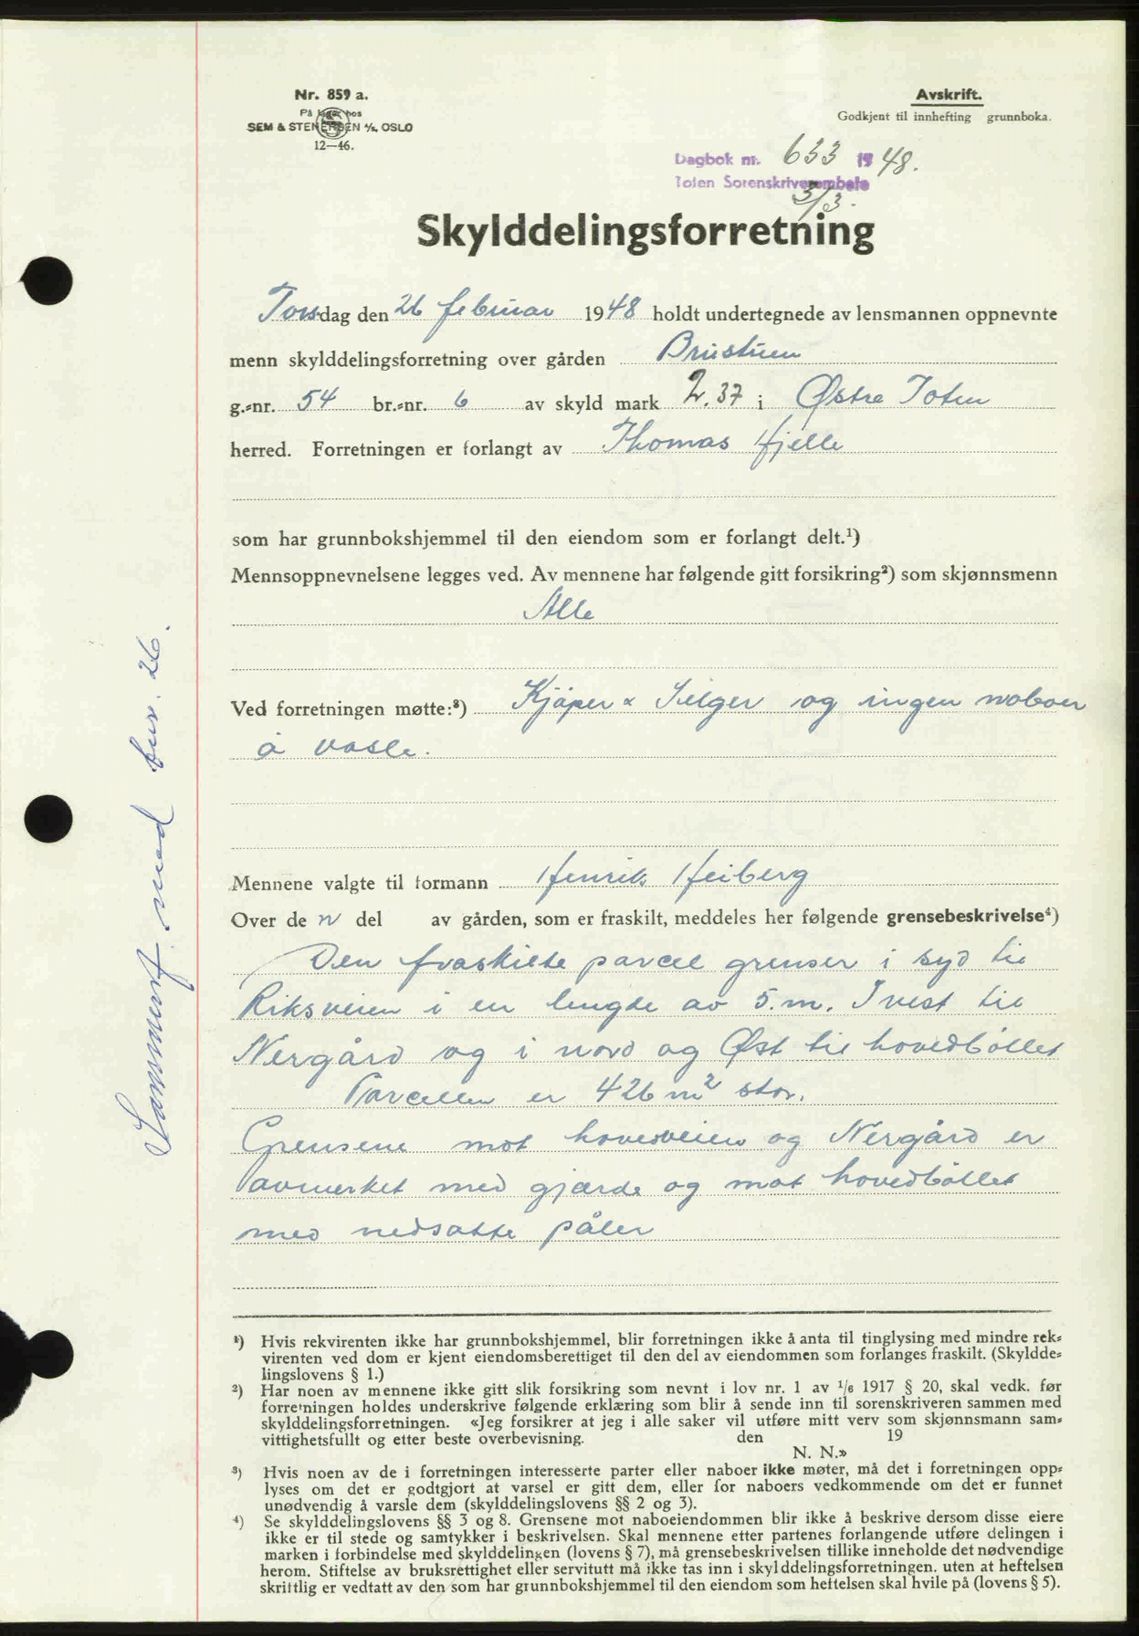 Nr. 859 a.
På lager hos
SEM & STENERSEN A/S. OSLO
12—46.
Avskrift.
Godkjent til innhefting grunnboka.
Dagbok nr. 633 1948.
Toten Sorenskriverembete
3/3.
Skylddelingsforretning
Torsdag den 26 februar 1948 holdt undertegnede av lensmannen oppnevnte
menn skylddelingsforretning over gården Brustuen
g.-nr. 54 br.-nr. 6 av skyld mark 2.37 i Østre Toten
herred. Forretningen er forlangt av Thomas Hjelle
som har grunnbokshjemmel til den eiendom som er forlangt delt.¹)
Mennsoppnevnelsene legges ved. Av mennene har følgende gitt forsikring²) som skjønnsmenn
Alle
Ved forretningen møtte:³) Kjøper & Selger og ingen naboer
å vasle.
Mennene valgte til formann Henrik Heiberg
Over de n del av gården, som er fraskilt, meddeles her følgende grensebeskrivelse⁴)
Den fraskilte parcel grenser i syd til
Riksveien i en lengde av 5.m. I vest til
Nergård og i nord og Øst til hovedbøllet
Parcellen er 426 m² stor.
Grensene mot hovedveien og Nergård er
avmerket med gjærde og mot hovedbøllet
med nedsatte påler
Sammenf. med bnr. 26.
¹) Hvis rekvirenten ikke har grunnbokshjemmel, blir forretningen ikke å anta til tinglysing med mindre rek-
virenten ved dom er kjent eiendomsberettiget til den del av eiendommen som forlanges fraskilt. (Skyldde-
lingslovens § 1.)
²) Har noen av mennene ikke gitt slik forsikring som nevnt i lov nr. 1 av 1/6 1917 § 20, skal vedk. før
forretningen holdes underskrive følgende erklæring som blir å sende inn til sorenskriveren sammen med
skylddelingsforretningen. «Jeg forsikrer at jeg i alle saker vil utføre mitt verv som skjønnsmann sam-
vittighetsfullt og etter beste overbevisning. den 19
N. N.»
³) Hvis noen av de i forretningen interesserte parter eller naboer ikke møter, må det i forretningen opp-
lyses om det er godtgjort at varsel er gitt dem, eller for naboers vedkommende om det er funnet
unødvendig å varsle dem (skylddelingslovens §§ 2 og 3).
⁴) Se skylddelingslovens §§ 3 og 8. Grensene mot naboeiendommen blir ikke å beskrive dersom disse eiere
ikke er til stede og samtykker i beskrivelsen. Skal mennene etter partenes forlangende utføre delingen i
marken i forbindelse med skylddelingen (lovens § 7), må grensebeskrivelsen tillike inneholde det nødvendige
herom. Stiftelse av bruksrettighet eller servitutt må ikke tas inn i skylddelingsforretningen. uten at heftelsen
skriftlig er vedtatt av den som har grunnbokshjemmel til den eiendom som heftelsen skal hvile på (lovens § 5).